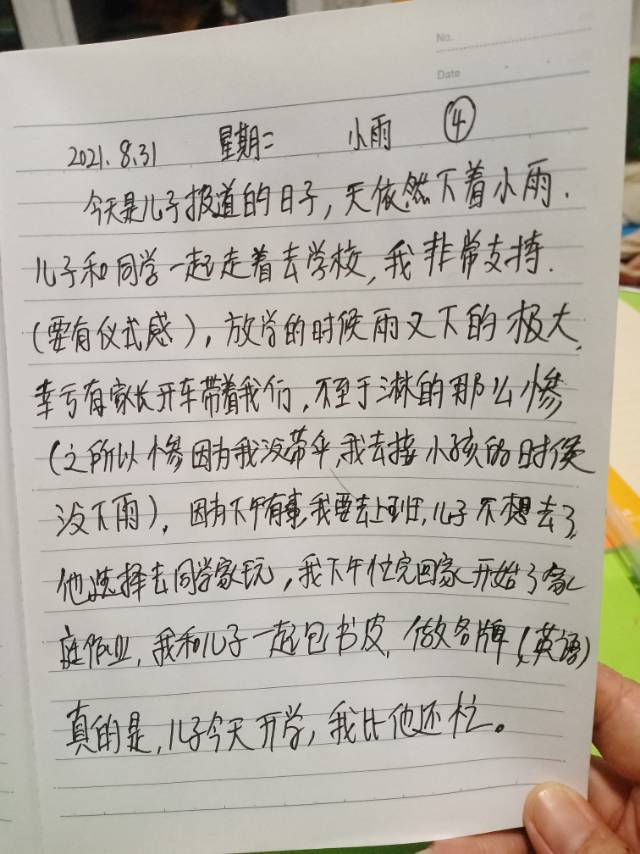 No.
Date
2021.8.31 星期二 小雨 ④
今天是儿子报道的日子，天依然下着小雨.
儿子和同学一起走着去学校，我非常支持.
(要有仪式感)，放学的时候雨又下的极大，
幸亏有家长开车带着我们，不至于淋的那么惨
(之所以惨因为我没带伞，我去接小孩的时候
没下雨)，因为下午有事，我要去上班，儿子不想去了，
他选择去同学家玩，我下午忙完回家开始了家
庭作业，我和儿子一起包书皮，做名牌，(英语)
真的是，儿子今天开学，我比他还忙。